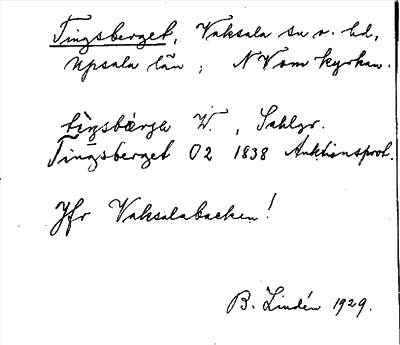 Tingsberget, Vaksala sn o. hd,
Upsala län; NV om kyrkan.
tiŋsbärjə W., Sahlgr.
Tingsberget O2 1838 Auktionsprot.
Jfr Vaksalabacken!
B. Lindén 1929.